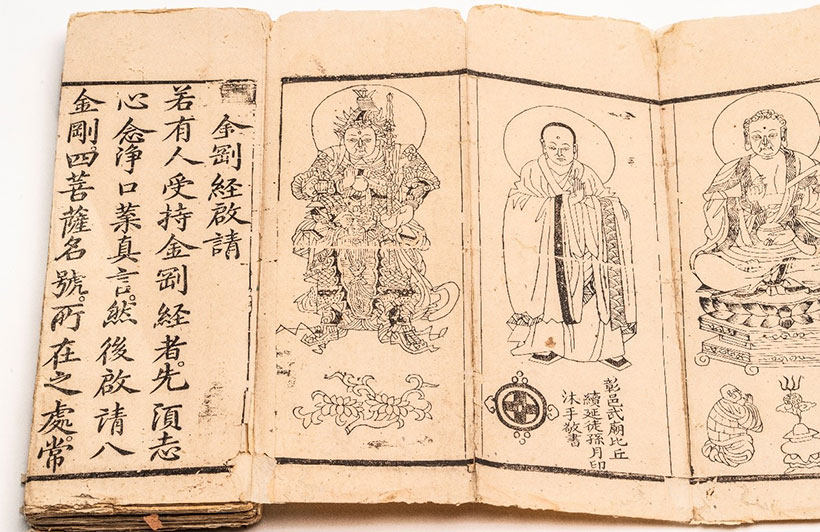 彭邑武廟比丘
續延徒孫月印
沐手敬書
金剛經啟請
若有人受持金剛經者。先湏志
心念淨口業真言。然後啟請八
金剛。四菩薩名號。所在之處。常